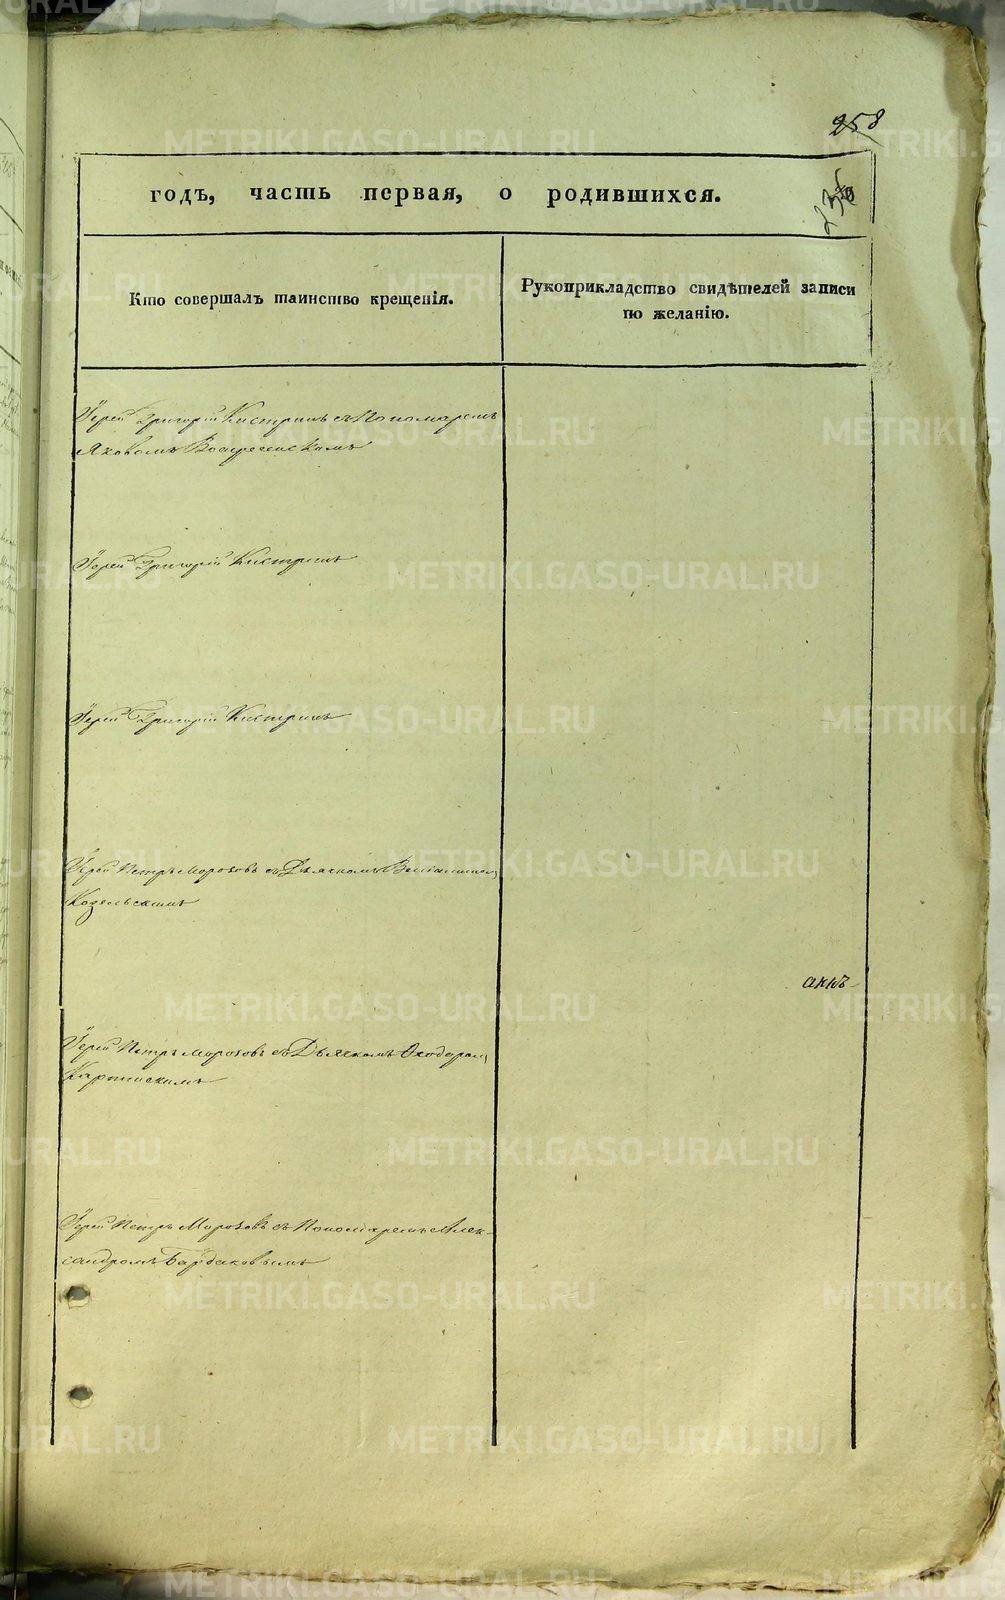 258
годъ, часть первая, о родившихся.
235
Кто совершалъ таинство крещенія.
Рукоприкладство свидѣтелей записи
по желанію.
Іерей Григорій Кистринъ съ Пономаремъ
Яковомъ Воскресенскимъ
Іерей Григорій Кистринъ
Іерей Григорій Кистринъ
Іерей Петръ Морозовъ съ Дьячкомъ
Козельскимъ
акнъ
Іерей Петръ Морозовъ съ Дьячкомъ Ѳеодором
Карпинскимъ
Іерей Петръ Морозовъ съ Пономаремъ Алек-
сандромъ Бардаковымъ
METRIKI.GASO-URAL.RU